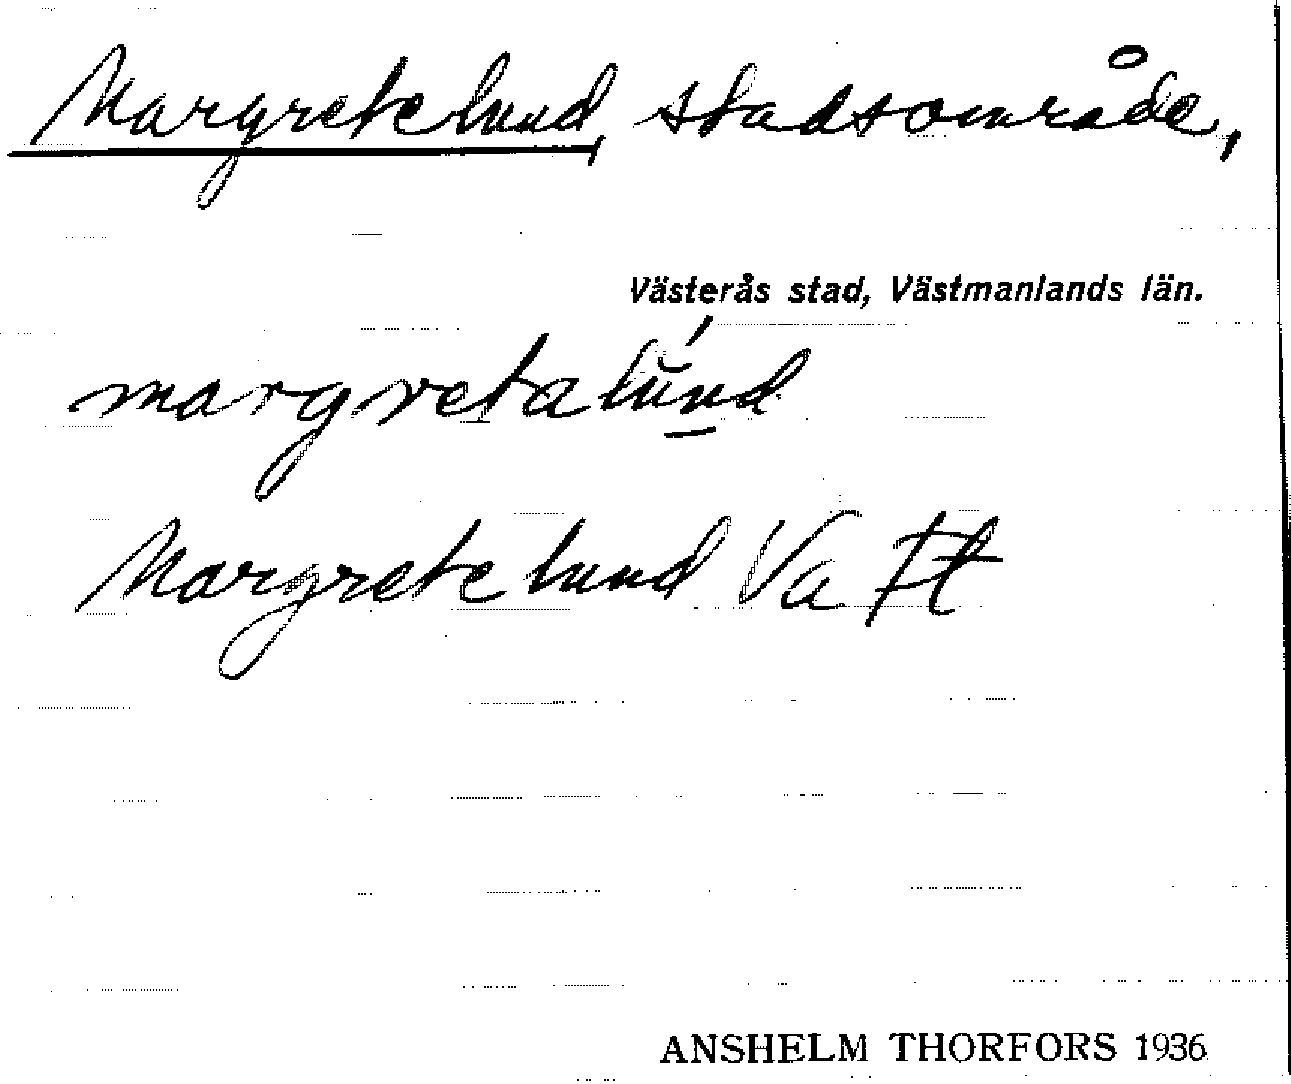 Margretelund, stadsområde,
Västerås stad, Västmanlands län.
margretalund
Margretelund Va
ANSHELM THORFORS 1936